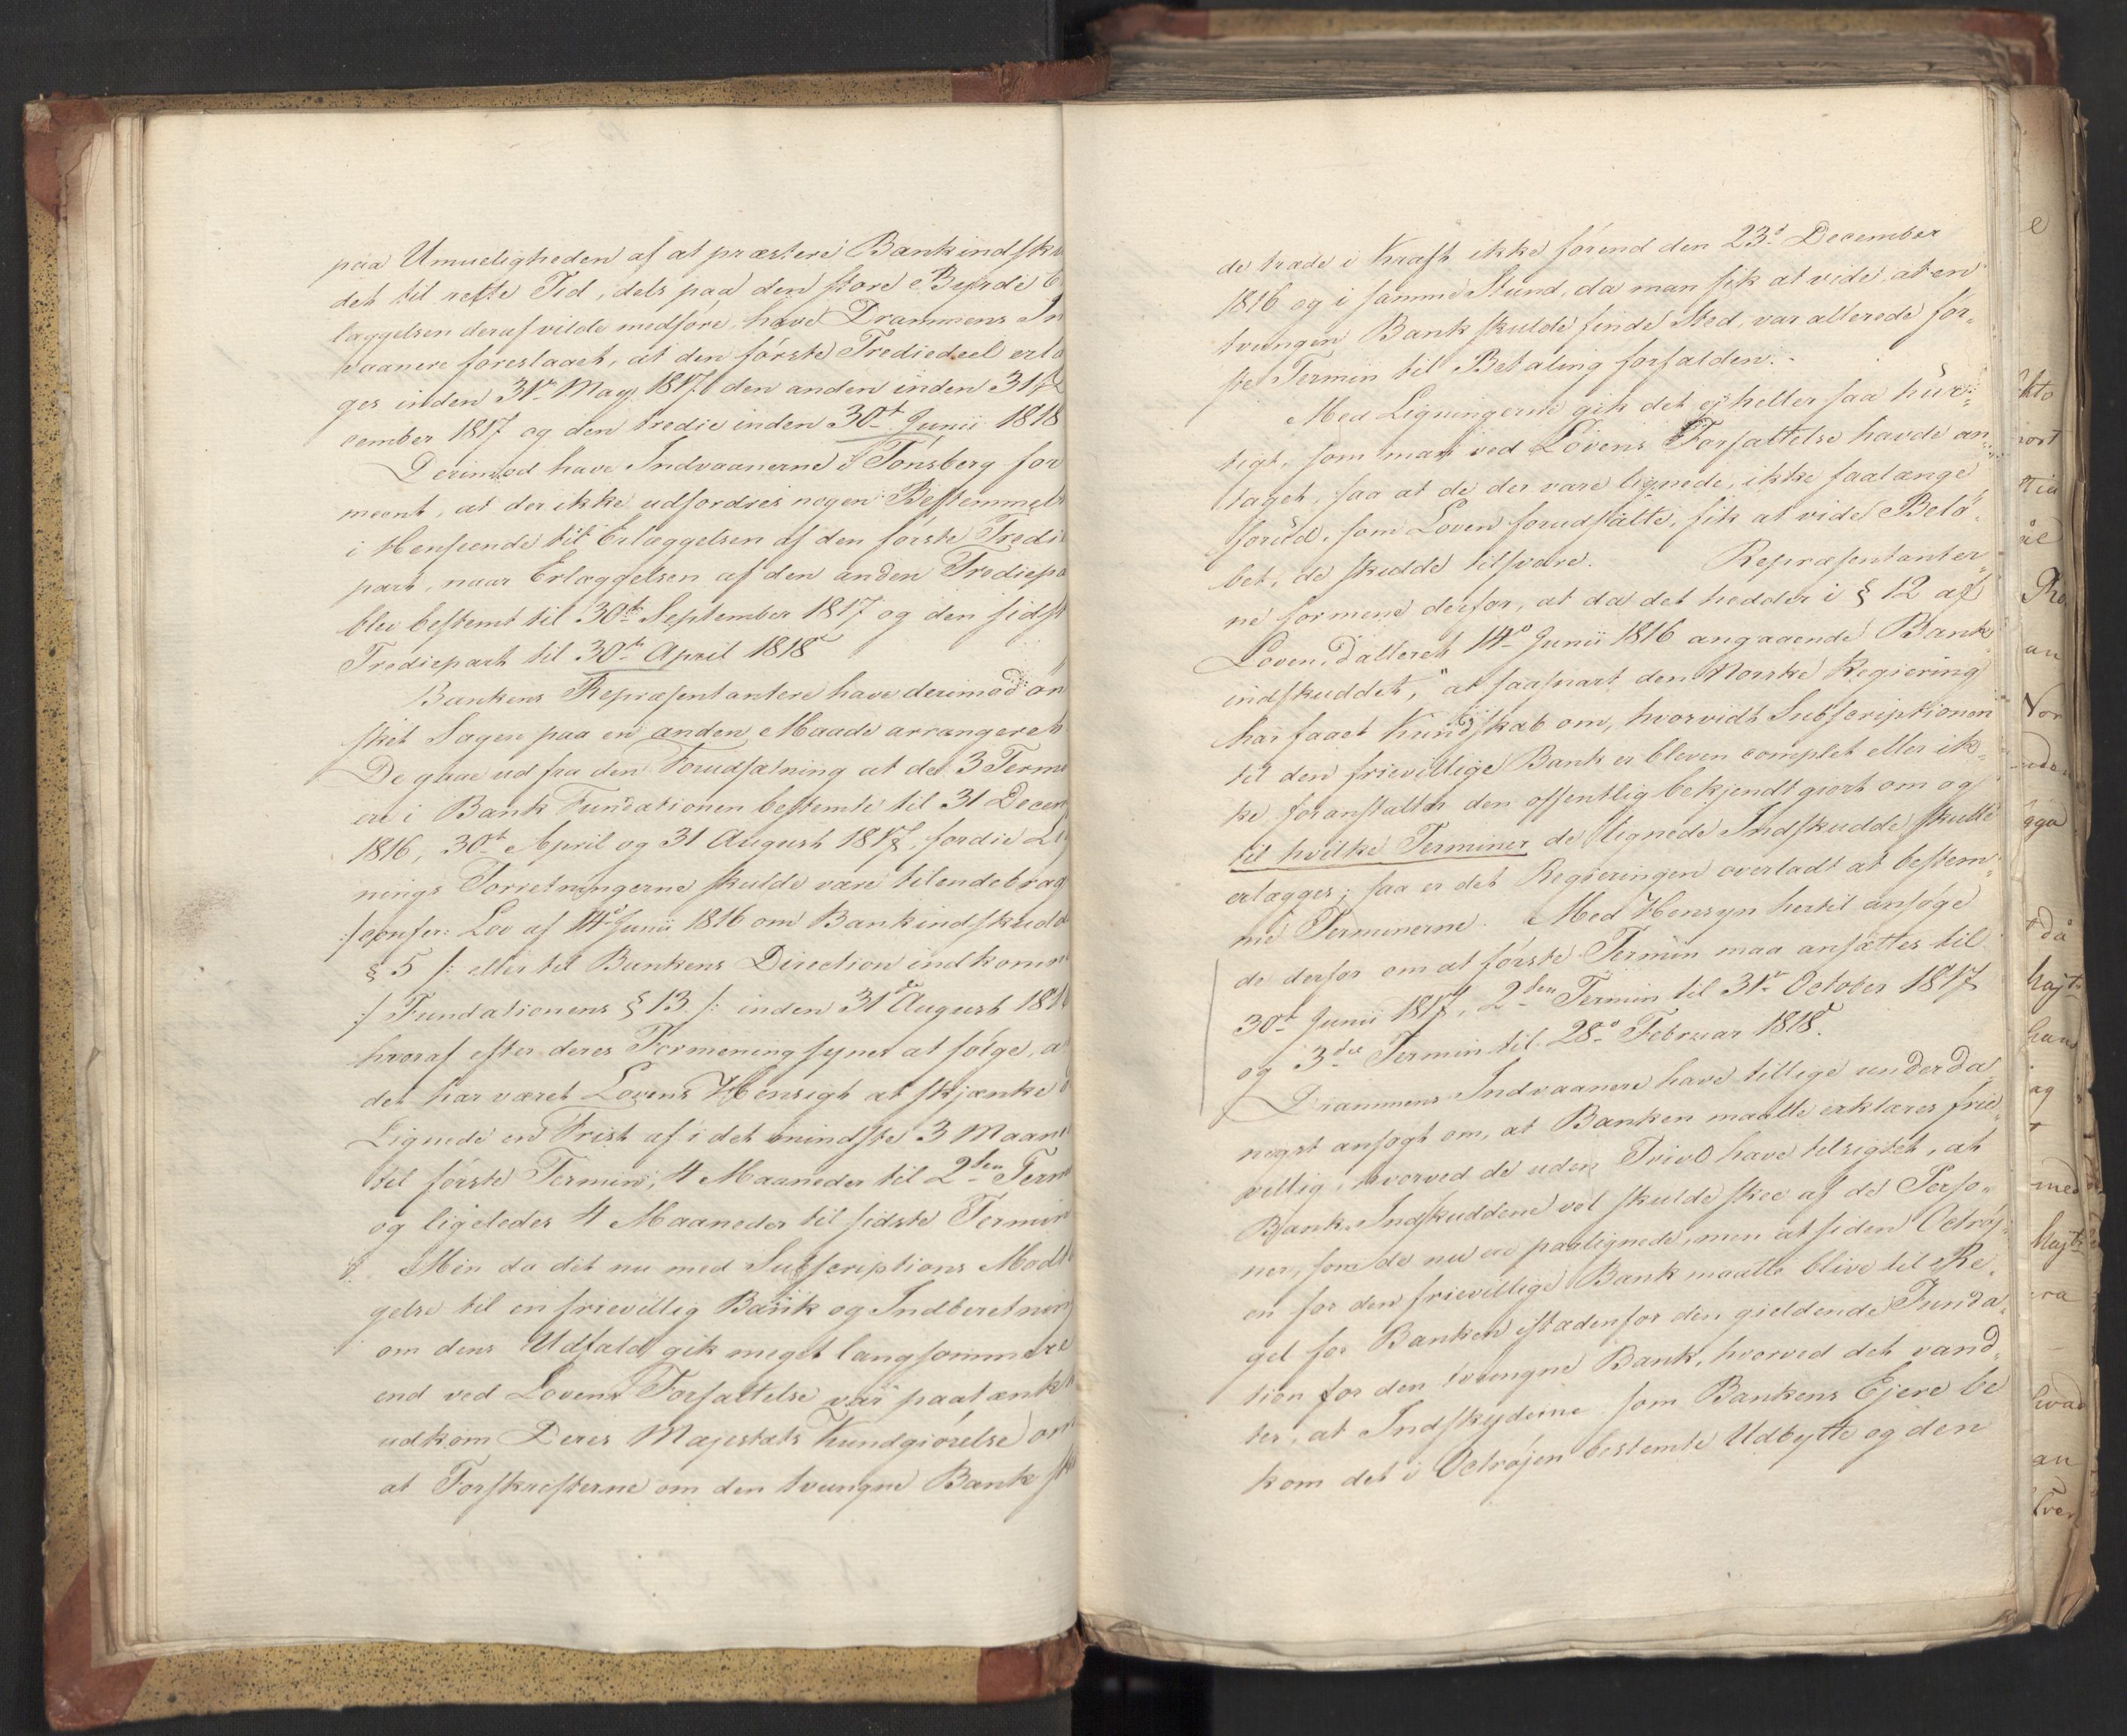 paa Umueligheden af at præstere Bankindsku
det til rette Tid, dels paa den store Byrde E
læggelsen deraf vilde medføre, have Drammens In
vaanere foreslaaet, at den første Trediedeel erlæ
ges inden 31te May 1817, den anden inden 31 De
cember 1817 og den tredie inden 30te Junii 1818
Derimod have Indvaanerne i Tönsberg for
meent, at der ikke udfordres nogen Bestemmels
i Henseende til Erlæggelsen af den første Tredie
part, naar Erlæggelsen af den anden Trediepa
blev bestemt til 30te September 1817 og den sidst
Trediepart til 30te April 1818
Bankens Repræsentantere have derimod øn
sket Sagen paa en anden Maade arrangeret
De gaae ud fra den Forudsætning at de 3 Term
ere i Bank Fundationen bestemte til 31 Decem
1816, 30te April og 31 August 1817, fordie Lig
nings Forretningerne skulde være tilendebrag
:/ confer: Lov af 14de Junii 1816 om Bankindskudd
§ 5 /: eller til Bankens Direction indkomn
:/ Fundationens § 13 /: inden 31te August 1816
hvoraf efter deres Formening synes at følge, a
det har været Lovens Hensigt at skjænke d
Lignede en Frist af i det mindste 3 Maane
til første Termin, 4 Maaneder til 2den Term
og ligeledes 4 Maaneder til sidste Termin
Men da det nu med Subscriptions Modt
gelse til en frievillig Bank og Indberetning
om dens Udfald gik meget langsommere
end ved Lovens Forfattelse var paatænkt
udkom Deres Majestæts Kundgiørelse om
at Forskrifterne om den tvungne Bank sku
de træde i Kraft ikke førend den 23de December
1816 og i samme Stund, da man fik at vide, at en
tvungen Bank skulde finde Sted, var allerede før,,
ste Termin til Betaling forfalden.
Med Ligningerne gik det ej heller saa hur,,
tigt, som man ved Lovens Forfattelse havde an,,
taget, saa at de der vare lignede, ikke saalænge
forud, som Loven forudsatte, fik at vide Belø,,
bet, de skulde tilsvare. Repræsentanter,,
ne formene derfor, at da det hedder i § 12 af
Loven, datteret 14de Junii 1816 angaaende Bank,,
indskuddet, "at saasnart den Norske Regiering
har faaet Kundskab om, hvorvidt Subscriptionen
til den frievillige Bank er bleven complet eller ik,,
ke, foranstalter den offentlig bekjendtgiort om og
til hvilke Terminer de lignede Indskudde skulle
erlægges; saa er det Regieringen overladt at bestem,,
me Terminerne. Med Hensyn hertil ansøge
de derfor om at første Termin maa ansættes til
30te Junii 1817, 2den Termin til 31te October 1817
og 3die Termin til 28de Februar 1818.
Drammens Indvaanere have tillige underda,,
nigst ansøgt om, at Banken maatte erklæres frie,,
villig, hvorved de uden Tvivl have tilsigtet, at
Bank-Indskuddene vel skulde skee af de Perso,,
ner, som de nu ere paalignede, men at siden Octroj,,
en for den frievillige Bank maatte blive til Re,,
gel for Banken istædenfor den gieldende Funda,,
tion for den tvungne Bank, hvorved det vand,,
tes, at Indskyderne som Bankens Ejere be
kom det i Octrojen bestemte Udbytte og den